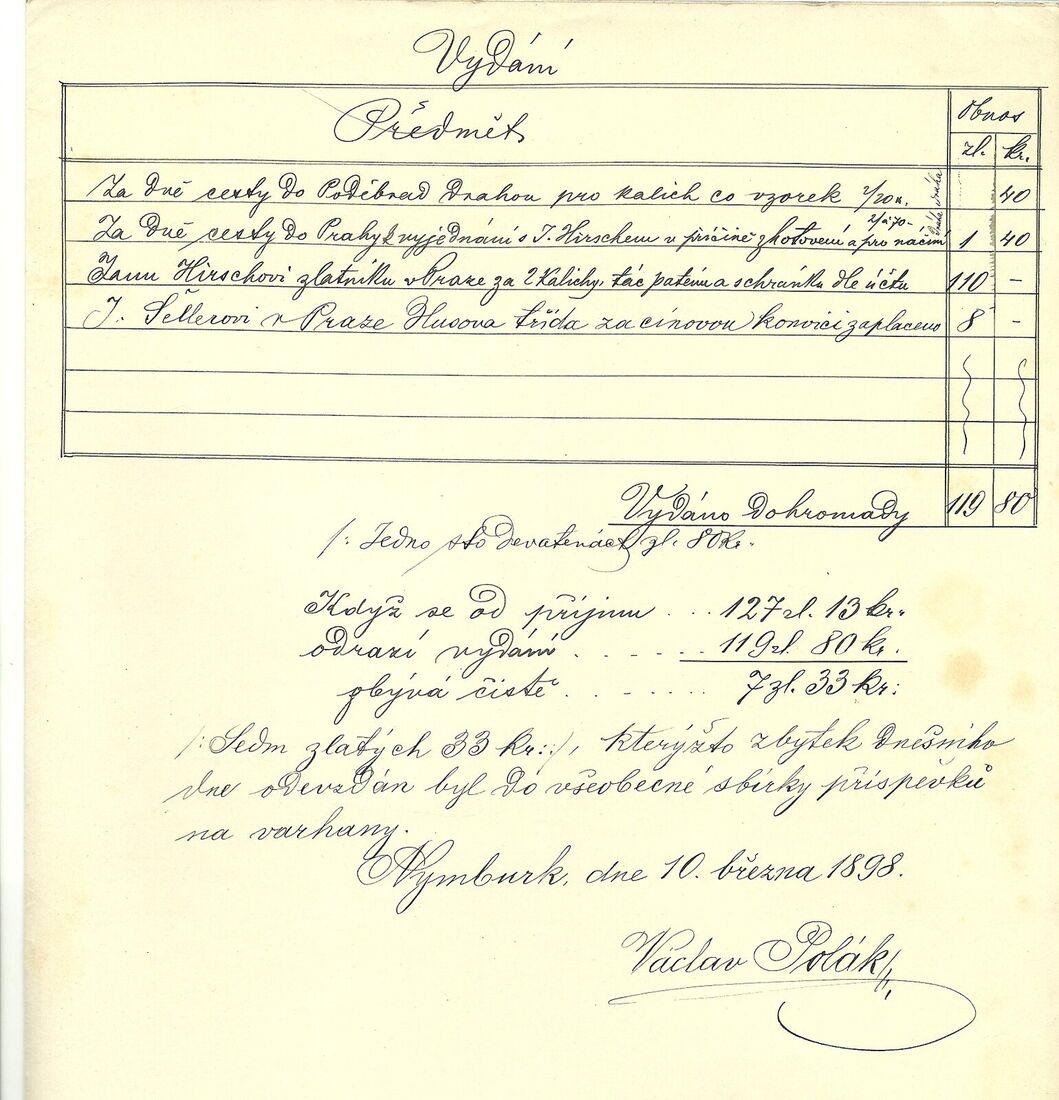 Vydání
Předmět
Obnos
zl. kr.
Za dvě cesty do Poděbrad drahou pro kalich co vzorek 2/20 k. 40
Za dvě cesty do Prahy k vyjednání s J. Hirschem v příčině zhotovení a pro náčiní 2/ à 70 1 40
Janu Hirschovi zlatníku v Praze za 2 kalichy, tác patenu a schránku dle účtu 110 -
J. Šellerovi v Praze Husova třída za cínovou konvici zaplaceno 8 -
Vydáno dohromady 119 80
/: Jedno sto devatenáct zl. 80 kr.
Když se od příjmu . . . 127 zl. 13 kr.
odrazí vydání . . . . . . . 119 zl. 80 kr.
zbývá čistě . . . . . . . 7 zl. 33 kr:
/: Sedm zlatých 33 kr: :/, kterýžto zbytek dnešního
dne odevzdán byl do všeobecné sbírky příspěvků
na varhany.
Nymburk, dne 10. března 1898.
Václav Polák